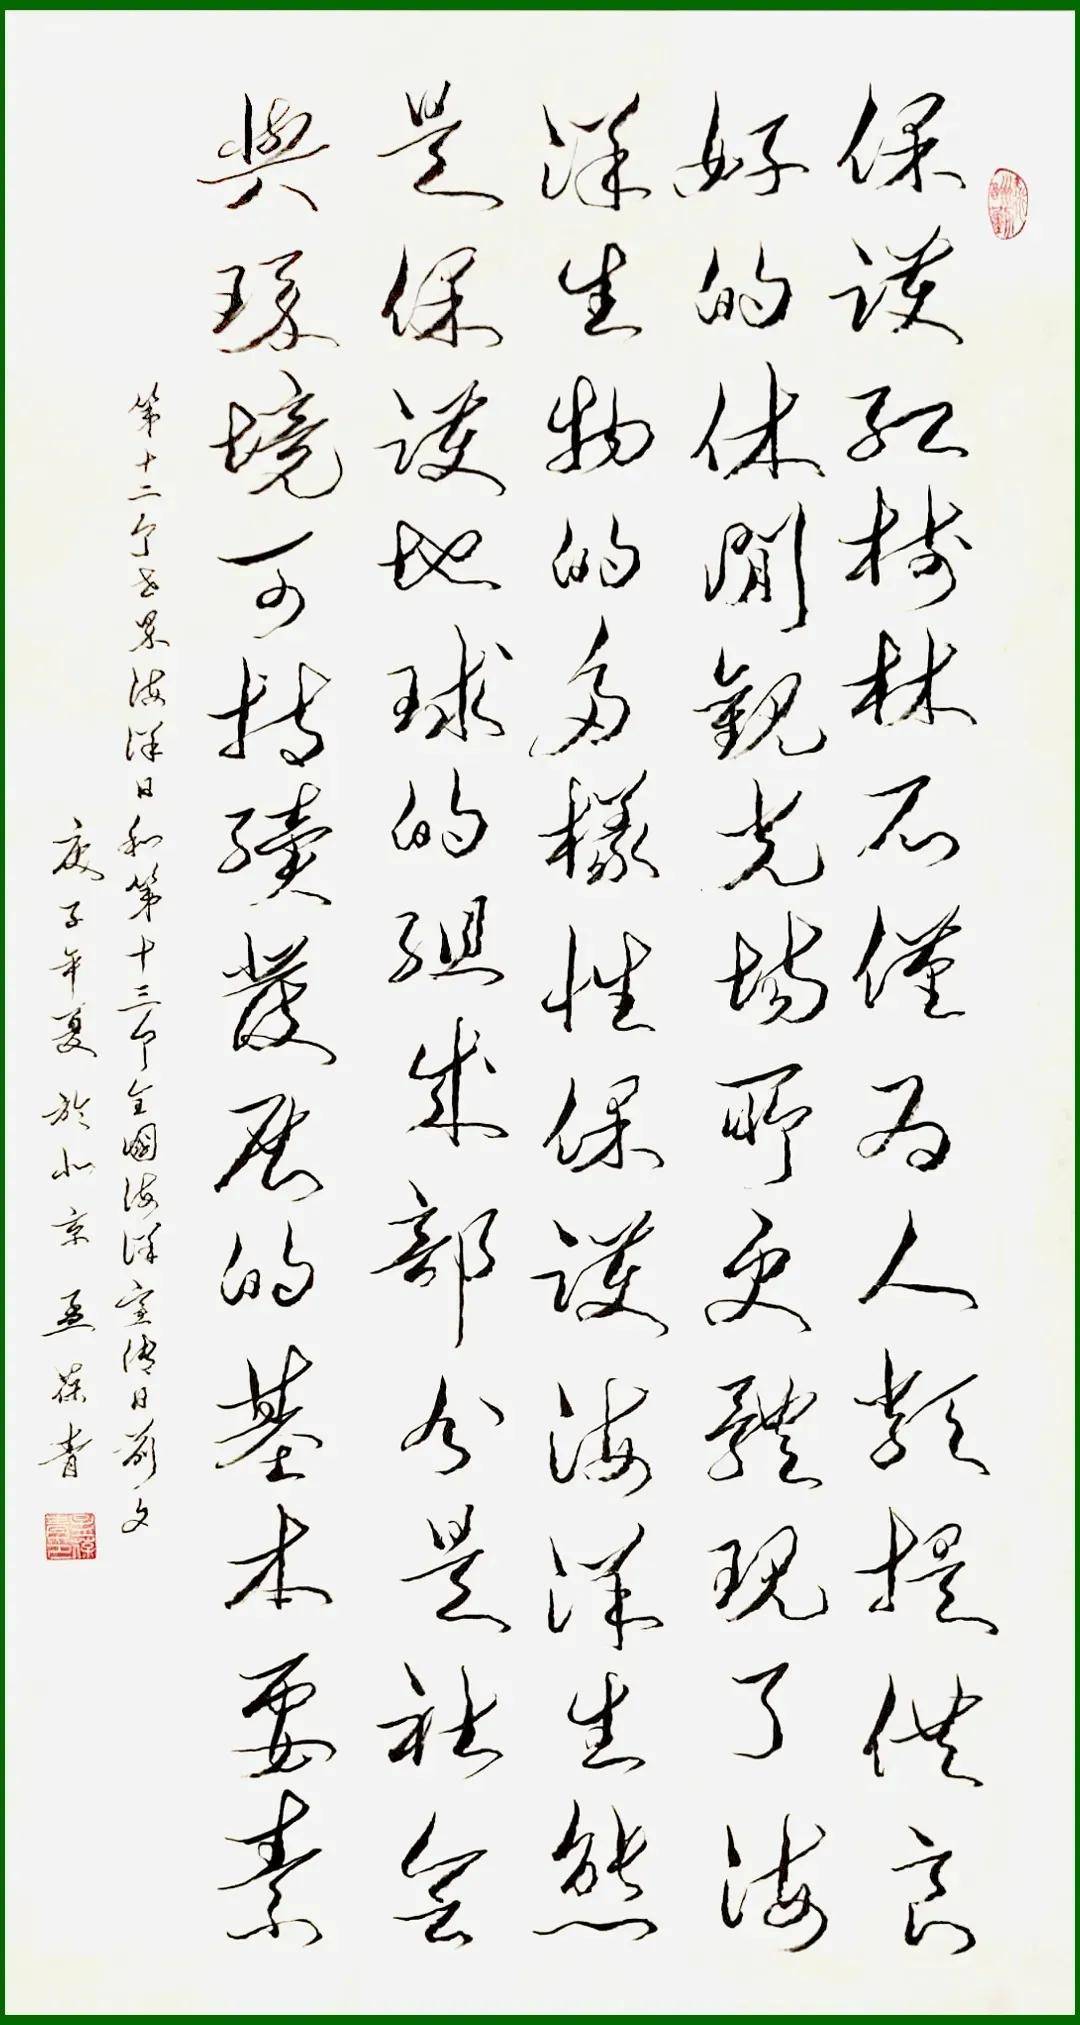 保護紅樹林不僅為人類提供良
好的休閒觀光場所更體現了海
洋生物的多樣性保護海洋生態
是保護地球的組成部分是社會
與環境可持續發展的基本要素
第十二个世界海洋日和第十三个全國海洋宣傳日前夕
庚子年夏於北京 孟葆青